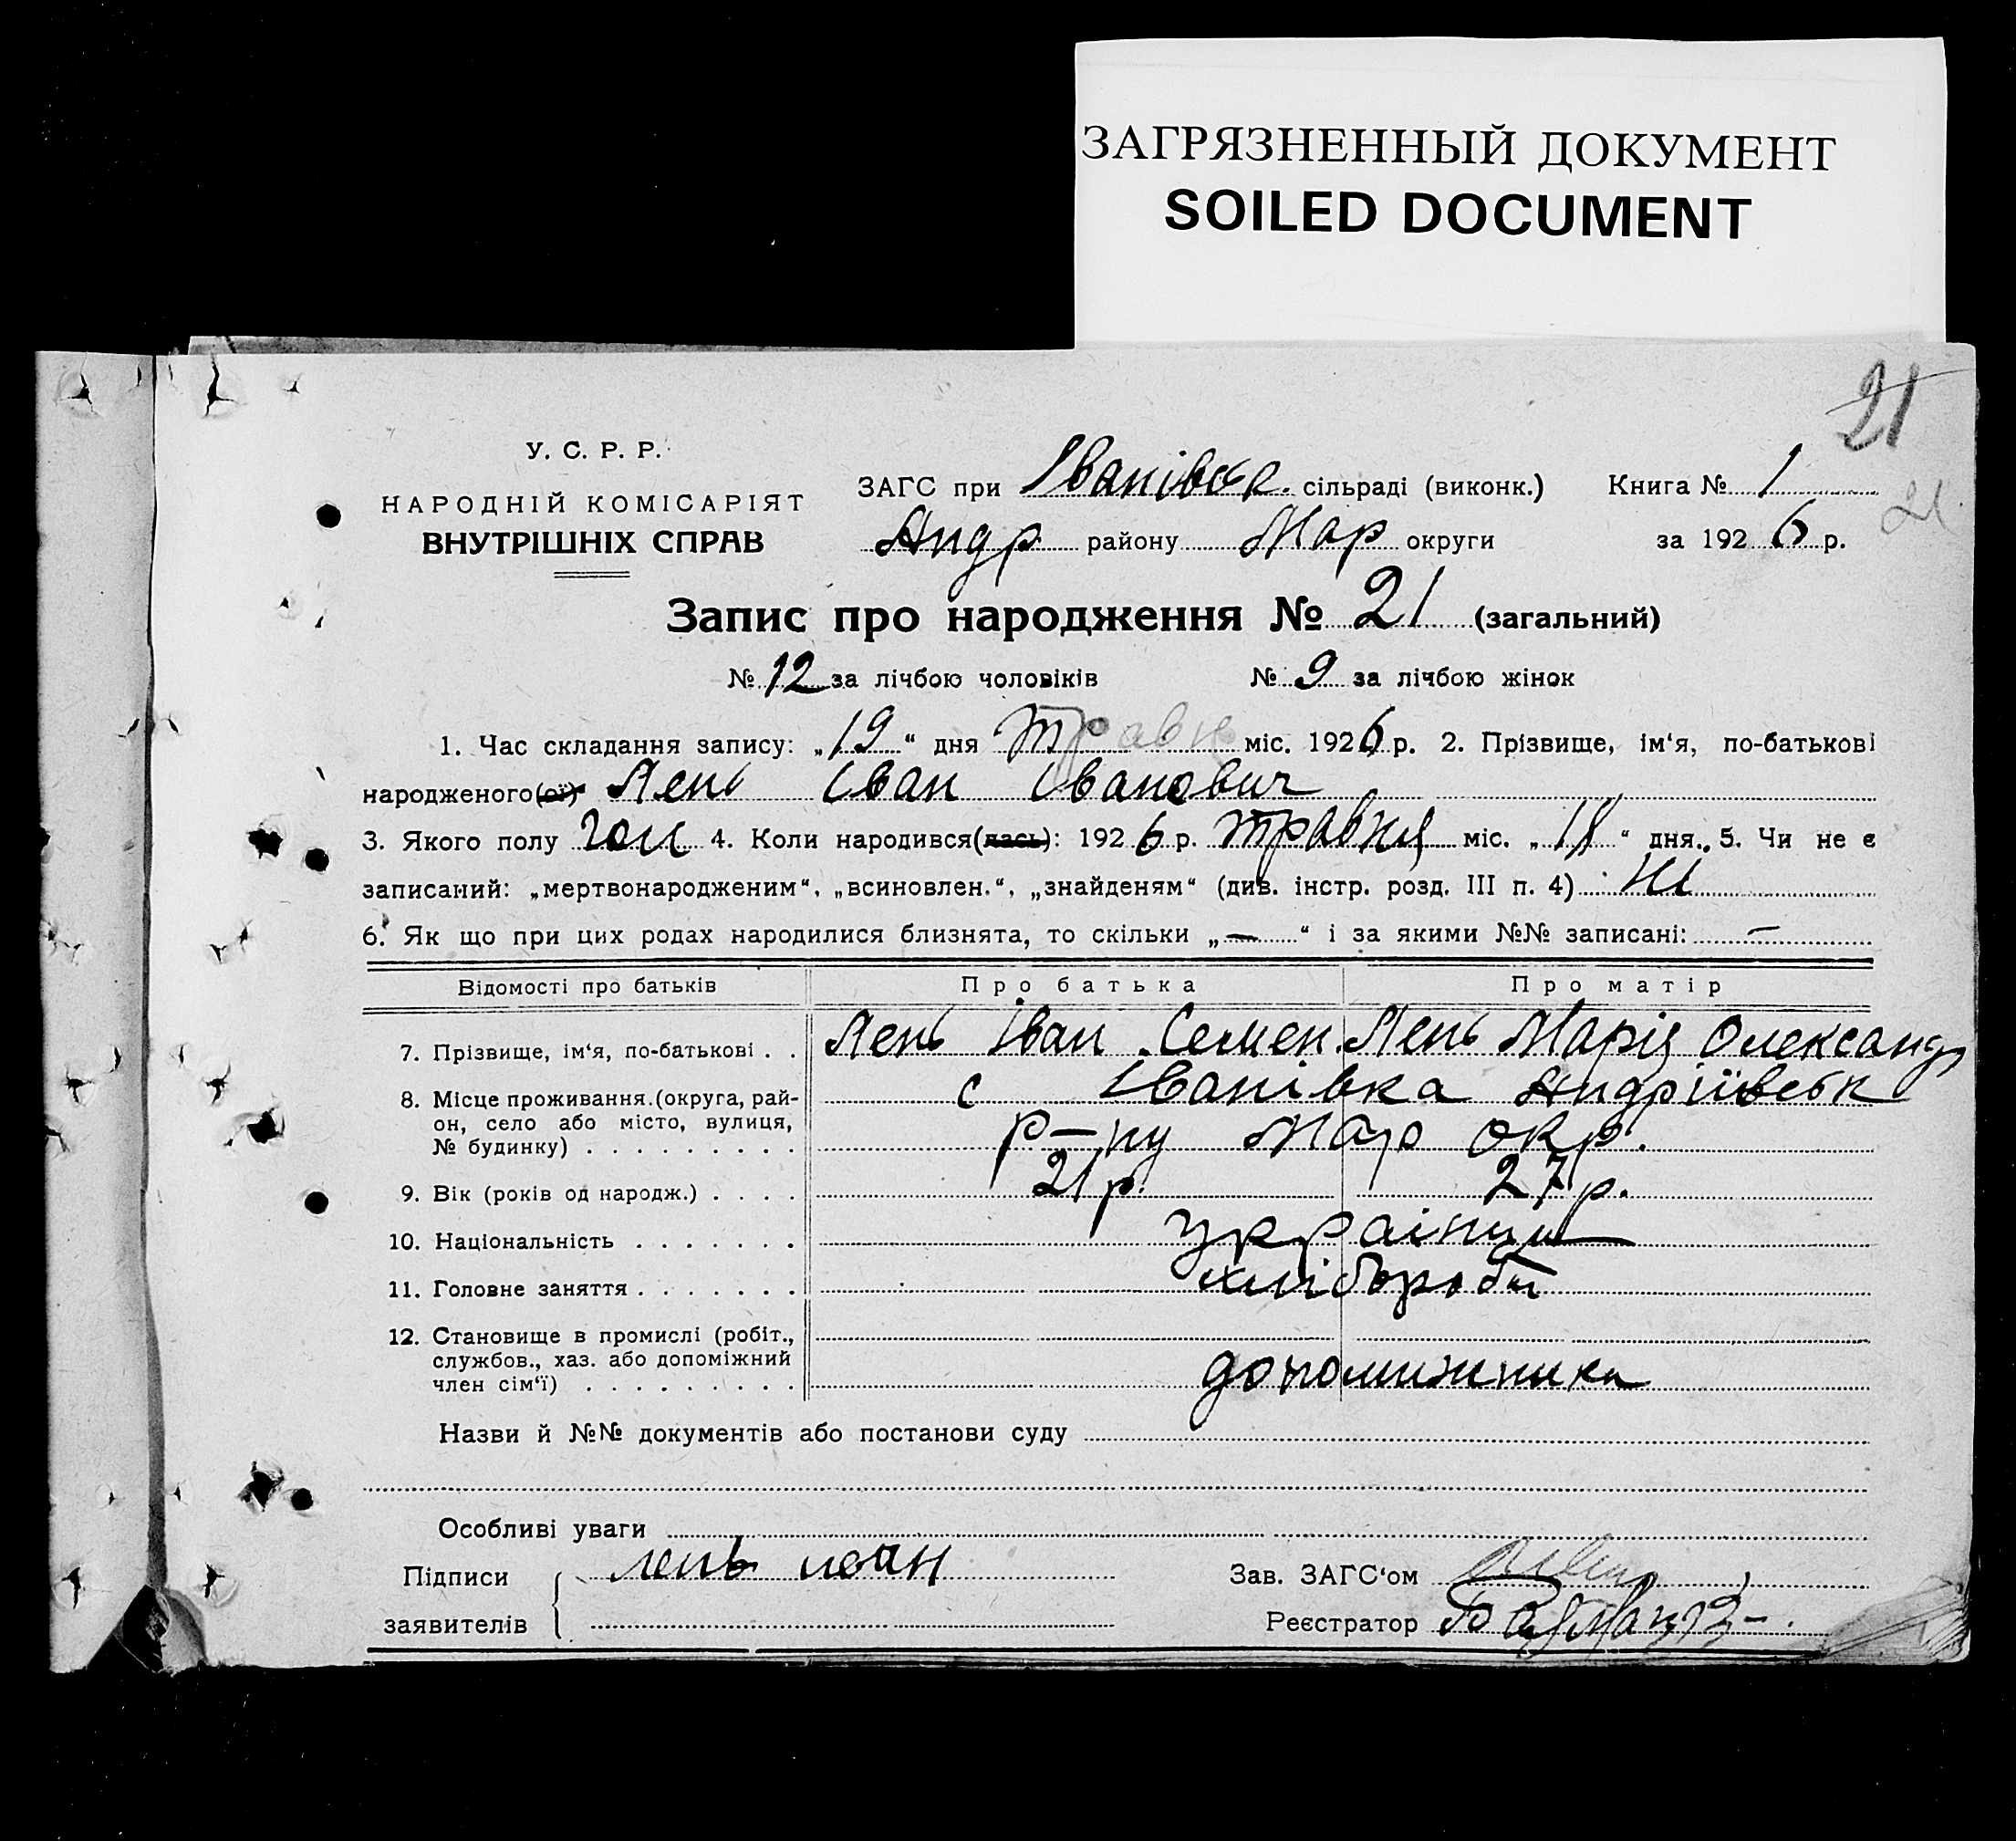 ЗАГРЯЗНЕННЫЙ ДОКУМЕНТ
SOILED DOCUMENT
21
21
У. С. Р. Р.
НАРОДНІЙ КОМІСАРІЯТ
ВНУТРІШНІХ СПРАВ
ЗАГС при Іванівськ. сільраді (виконк.) Книга № 1
Андр району Мар округи за 1926 р.
Запис про народження № 21 (загальний)
№ 12 за лічбою чоловіків № 9 за лічбою жінок
1. Час складання запису: „19“ дня травня міс. 1926 р. 2. Прізвище, ім‘я, по-батькові
народженого(ої) Лень Іван Іванович
3. Якого полу чол 4. Коли народився(лась): 1926 р. травня міс. „18“ дня. 5. Чи не є
записаний: „мертвонародженим“, „всиновлен.“, „знайденям“ (див. інстр. розд. III п. 4) Ні
6. Як що при цих родах народилися близнята, то скільки „—“ і за якими №№ записані: —
Відомості про батьків Про батька Про матір
7. Прізвище, ім‘я, по-батькові . . Лень Іван Семен. Лень Марія Олександ
8. Місце проживання.(округа, рай- с Іванівка Андріївськ
он, село або місто, вулиця,
№ будинку) . . . . . . . . . р—ну Мар окр.
9. Вік (років од народж.) . . . . 21 р. 27 р.
10. Національність . . . . . . . українці
11. Головне заняття . . . . . . . хлібороби
12. Становище в промислі (робіт.,
службов., хаз. або допоміжний
член сім‘ї) . . . . . . . . . допомижники
Назви й №№ документів або постанови суду
Особливі уваги
Підписи лень иван Зав. ЗАГС‘ом
заявителів Реєстратор